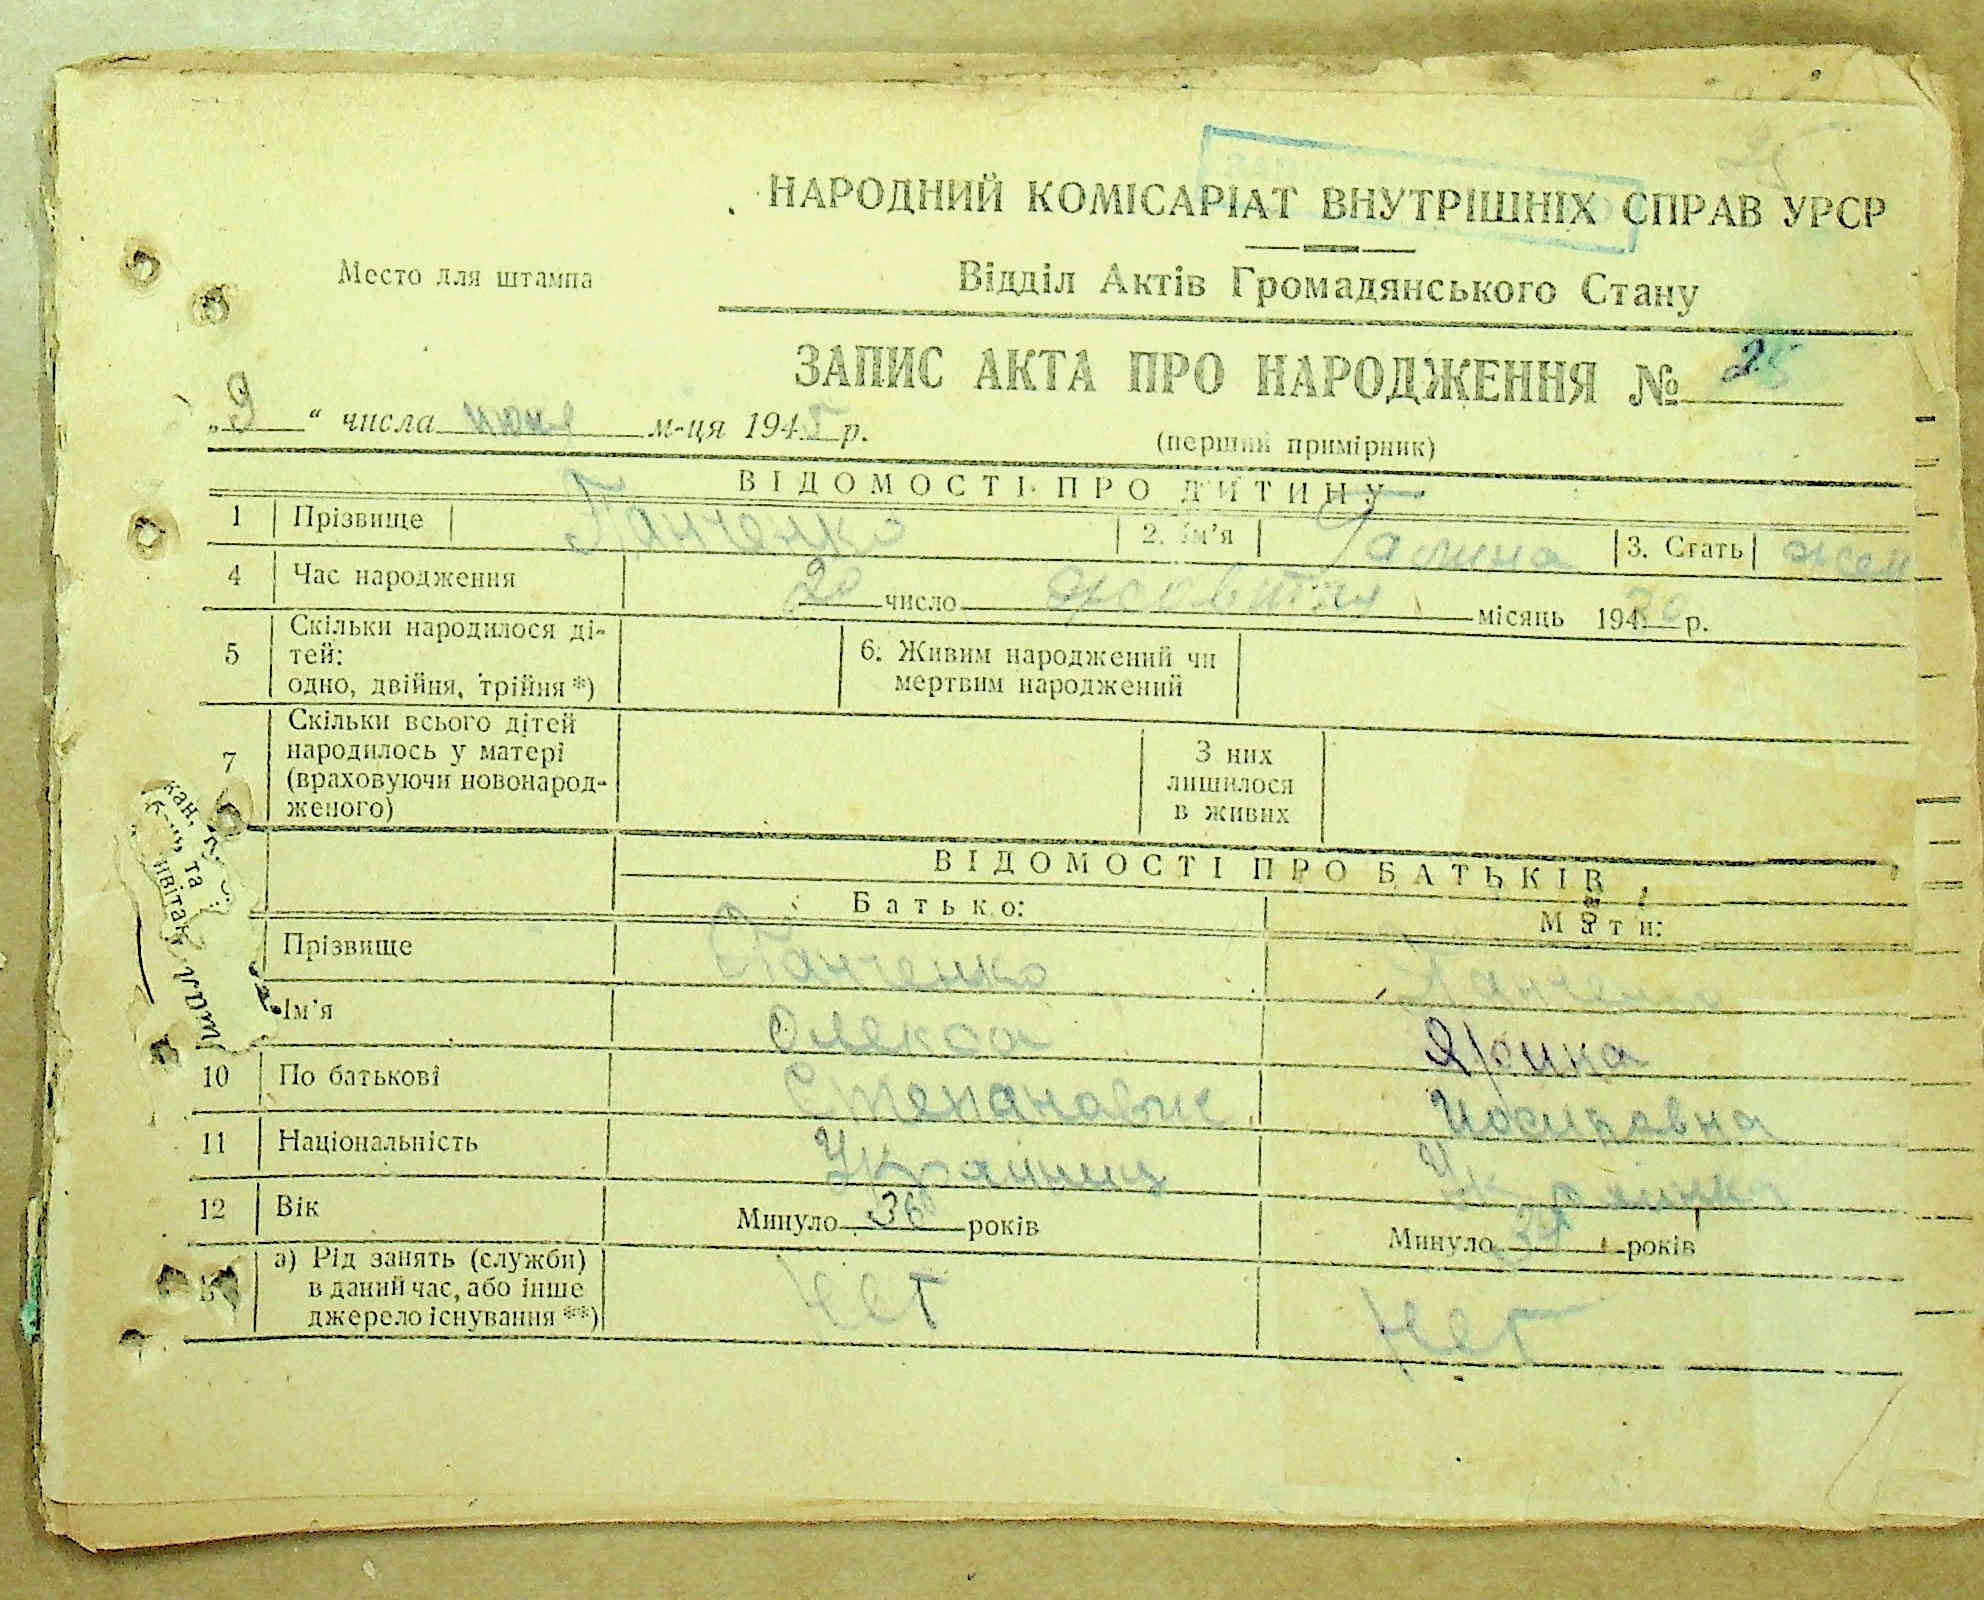 НАРОДНИЙ КОМІСАРІАТ ВНУТРІШНІХ СПРАВ УРСР
Место для штампа
Відділ Актів Громадянського Стану
ЗАПИС АКТА ПРО НАРОДЖЕННЯ № 25
„9“ числа июня м-ця 1945 р.
(перший примірник)
ВІДОМОСТІ ПРО ДИТИНУ
1 Прізвище Панченко 2. Ім'я Галина 3. Стать жен
4 Час народження 20 число жовтня місяць 194 р.
5 Скільки народилося ді-
тей:
одно, двійня, трійня *)
6. Живим народжений чи
мертвим народжений
7 Скільки всього дітей
народилось у матері
(враховуючи новонарод-
женого)
З них
лишилося
в живих
ВІДОМОСТІ ПРО БАТЬКІВ
Батько: Мати:
Прізвище Панченко Панченко
Ім'я Олекса Ярина
10 По батькові Степанавич Иосиповна
11 Національність Українец Українка
12 Вік Минуло 36 років Минуло років
а) Рід занять (служби)
в даний час, або інше
джерело існування **)
Нет Нет